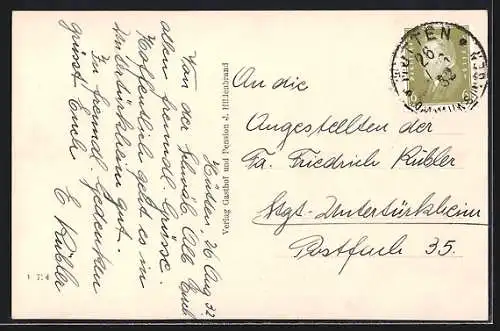 Hütten, 26 Aug 32
Von der schwäb. Alb Euch
allen freundl. Grüsse.
Hoffentlich geht es in
Untertürkheim gut.
In freundl. Gedenken
grüsst Euch
E Kübler
Verlag Gasthof und Pension J. Hildenbrand
An die
Angestellten der
Fa. Friedrich Kübler
Stgt-Untertürkheim
Postfach 35.
HÜTTEN
26
32